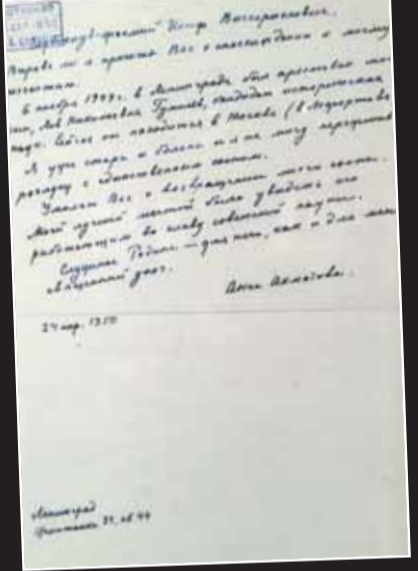 Глубокоуважаемый Иосиф Виссарионович,
Вправе ли я просить Вас о снисхождении к моему
несчастью.
6 ноября 1949 г. в Ленинграде был арестован мой
сын, Лев Николаевич Гумилев, кандидат исторических
наук. Сейчас он находится в Москве (в Лефортове
Я уже стара и больна и я не могу пережить
разлуку с единственным сыном.
Умоляю Вас о возвращении моего сына.
Моей лучшей мечтой было увидеть его
работающим во славу советской науки.
Служение Родине — для него, как и для меня
священный долг.
Анна Ахматова.
24 апр. 1950
Ленинград
Фонтанка 34, кв 44